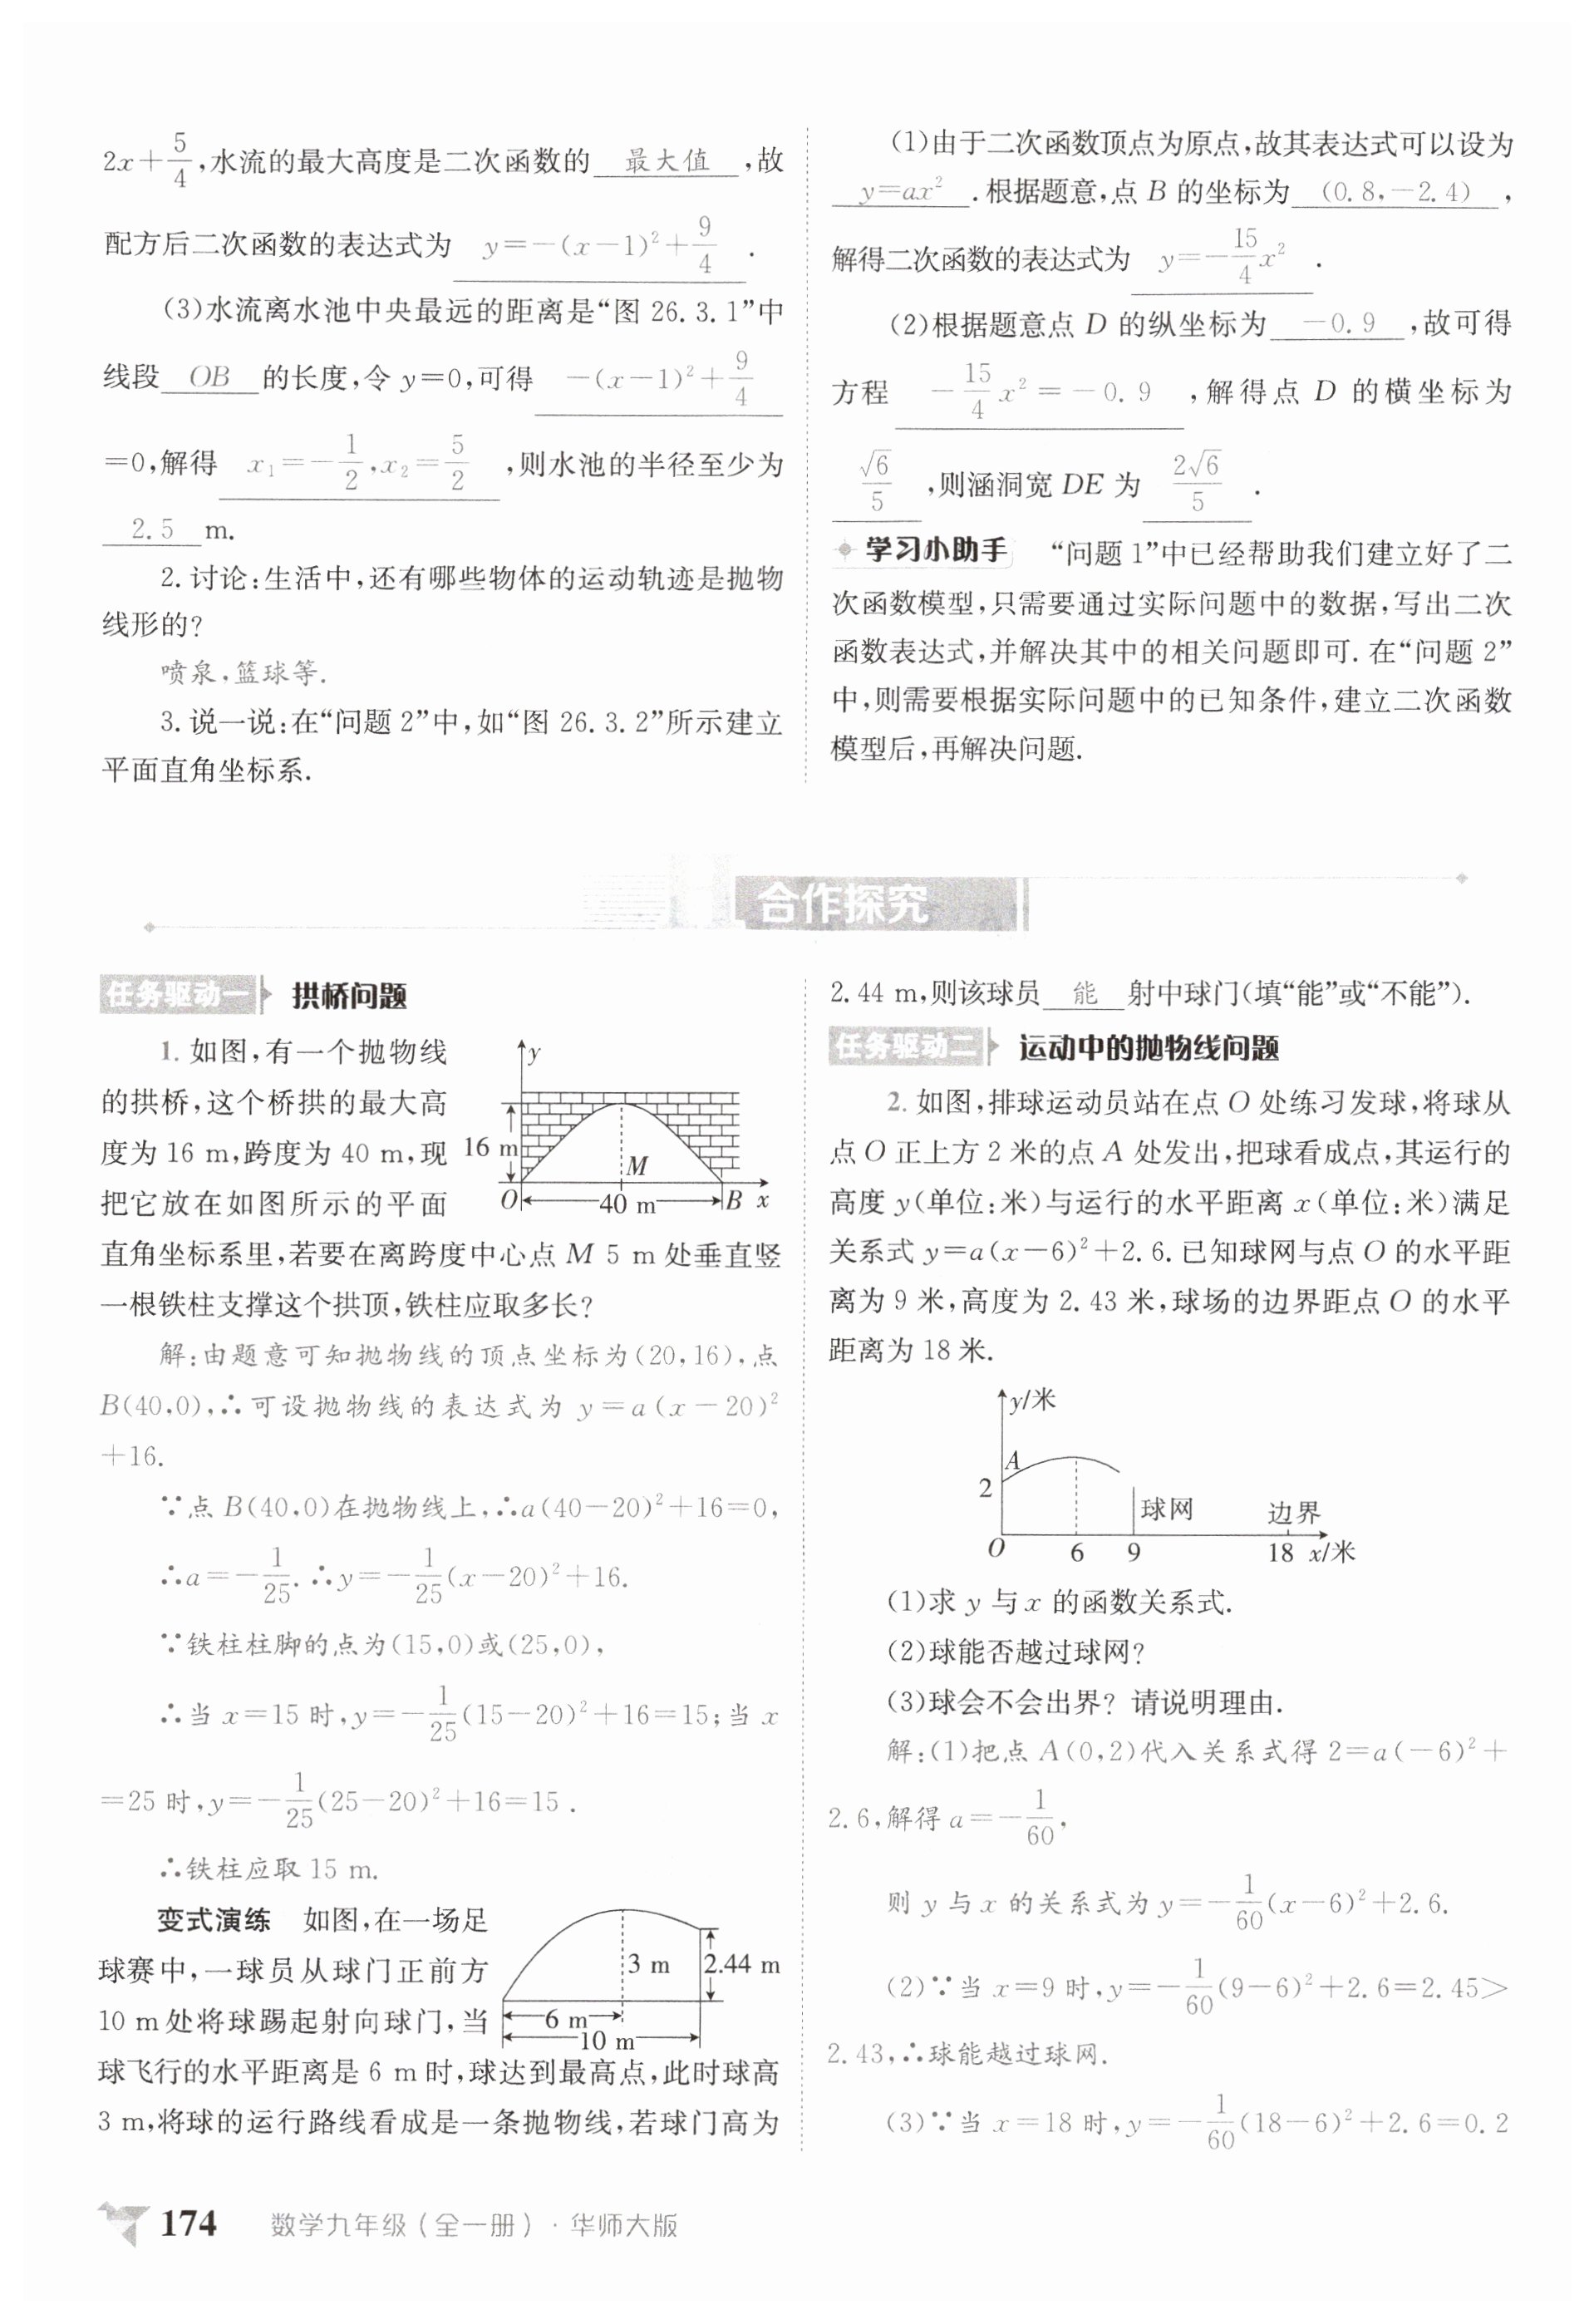 2x+5/4,水流的最大高度是二次函数的 最大值 ,故
配方后二次函数的表达式为 y=-(x-1)²+9/4 .
(3)水流离水池中央最远的距离是“图 26.3.1”中
线段 OB 的长度,令 y=0,可得 -(x-1)²+9/4
=0,解得 x₁=-1/2,x₂=5/2 ,则水池的半径至少为
2.5 m.
2.讨论:生活中,还有哪些物体的运动轨迹是抛物
线形的?
喷泉,篮球等.
3.说一说:在“问题 2”中,如“图 26.3.2”所示建立
平面直角坐标系.
(1)由于二次函数顶点为原点,故其表达式可以设为
y=ax² .根据题意,点 B 的坐标为 (0.8,-2.4) ,
解得二次函数的表达式为 y=-15/4x² .
(2)根据题意点 D 的纵坐标为 -0.9 ,故可得
方程 -15/4x²=-0.9 ,解得点 D 的横坐标为
√6/5 ,则涵洞宽 DE 为 2√6/5 .
学习小助手 “问题 1”中已经帮助我们建立好了二
次函数模型,只需要通过实际问题中的数据,写出二次
函数表达式,并解决其中的相关问题即可.在“问题 2”
中,则需要根据实际问题中的已知条件,建立二次函数
模型后,再解决问题.
合作探究
任务驱动一 拱桥问题
1.如图,有一个抛物线
的拱桥,这个桥拱的最大高
度为 16 m,跨度为 40 m,现
把它放在如图所示的平面
y
16 m
M
O
40 m
B
x
直角坐标系里,若要在离跨度中心点 M 5 m 处垂直竖
一根铁柱支撑这个拱顶,铁柱应取多长?
解:由题意可知抛物线的顶点坐标为(20,16),点
B(40,0),∴可设抛物线的表达式为 y=a(x-20)²
+16.
∵点 B(40,0)在抛物线上,∴a(40-20)²+16=0,
∴a=-1/25.∴y=-1/25(x-20)²+16.
∵铁柱柱脚的点为(15,0)或(25,0),
∴当 x=15 时,y=-1/25(15-20)²+16=15;当 x
=25 时,y=-1/25(25-20)²+16=15.
∴铁柱应取 15 m.
变式演练 如图,在一场足
球赛中,一球员从球门正前方
10 m处将球踢起射向球门,当
3 m
2.44 m
6 m
10 m
球飞行的水平距离是 6 m时,球达到最高点,此时球高
3 m,将球的运行路线看成是一条抛物线,若球门高为
2.44 m,则该球员 能 射中球门(填“能”或“不能”).
任务驱动二 运动中的抛物线问题
2.如图,排球运动员站在点 O 处练习发球,将球从
点 O 正上方 2 米的点 A 处发出,把球看成点,其运行的
高度 y(单位:米)与运行的水平距离 x(单位:米)满足
关系式 y=a(x-6)²+2.6.已知球网与点 O 的水平距
离为 9 米,高度为 2.43 米,球场的边界距点 O 的水平
距离为 18 米.
y/米
A
2
球网
边界
O
6
9
18
x/米
(1)求 y 与 x 的函数关系式.
(2)球能否越过球网?
(3)球会不会出界? 请说明理由.
解:(1)把点 A(0,2)代入关系式得 2=a(-6)²+
2.6,解得 a=-1/60,
则 y 与 x 的关系式为 y=-1/60(x-6)²+2.6.
(2)∵当 x=9 时,y=-1/60(9-6)²+2.6=2.45>
2.43,∴球能越过球网.
(3)∵当 x=18 时,y=-1/60(18-6)²+2.6=0.2
174 数学九年级(全一册)·华师大版